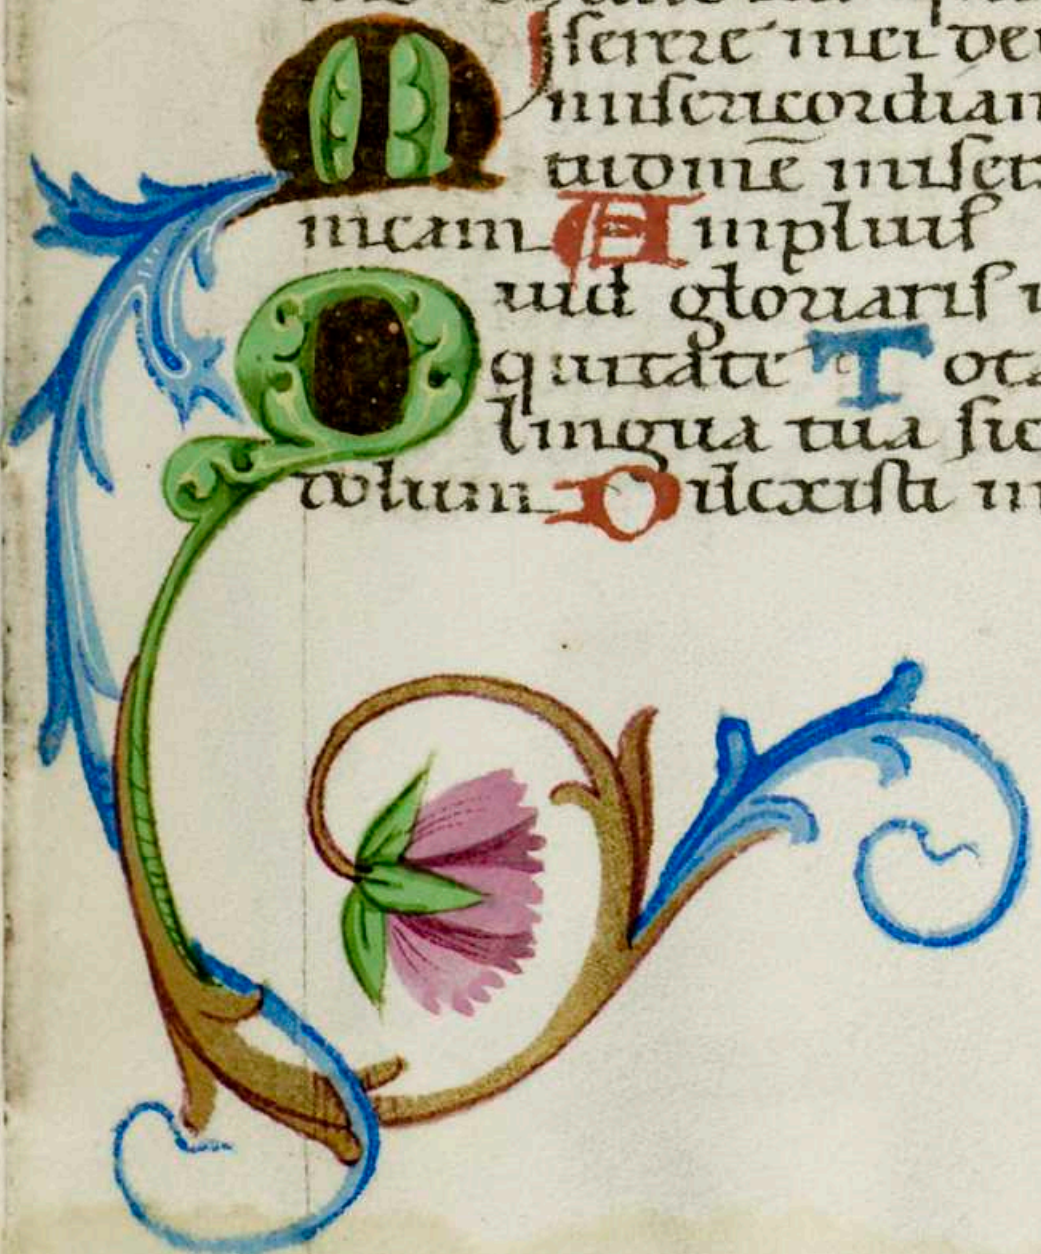 Miserere mei de
misericordiam
tudinē miser
meam Amplius
Quid gloriaris
quitate Tota
lingua tua sic
dolum Dilexisti in